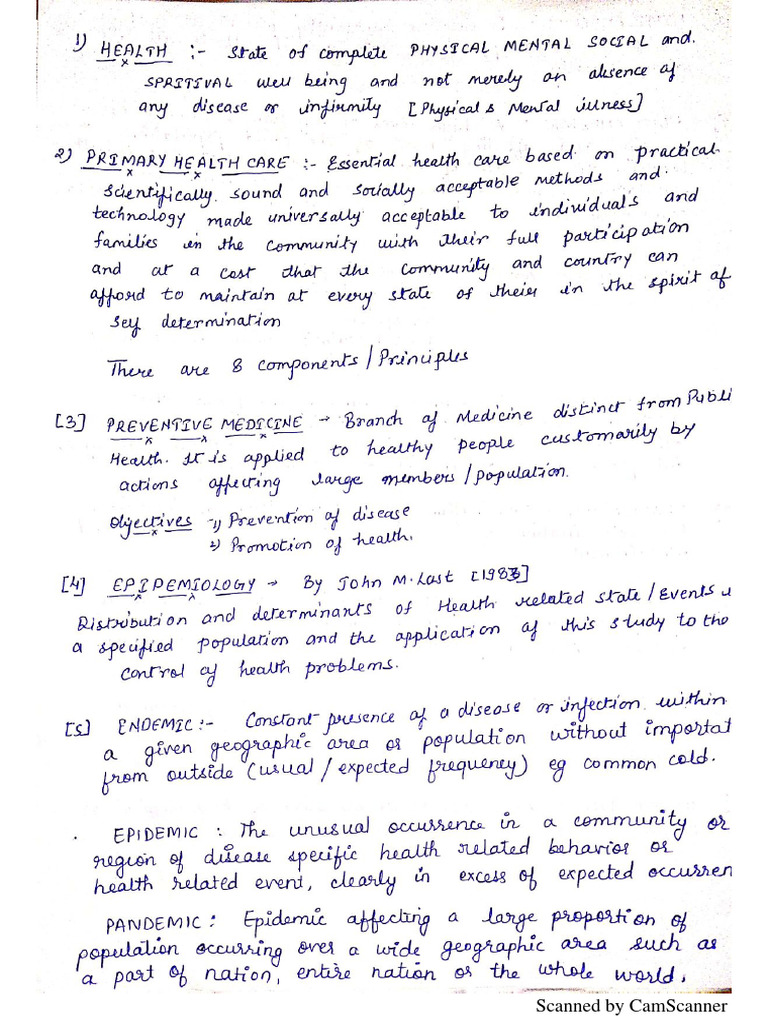 1) HEALTH :- State of complete PHYSICAL MENTAL SOCIAL and
SPRITIVAL well being and not merely an absence of
any disease or infirmity [Physical & Mental illness]
2) PRIMARY HEALTH CARE :- Essential health care based on practical
scientifically sound and socially acceptable methods and
technology made universally acceptable to individuals and
families in the community with their full participation
and at a cost that the community and country can
afford to maintain at every state of their in the spirit of
self determination
There are 8 components/Principles
[3] PREVENTIVE MEDICINE → Branch of Medicine distinct from Publi
Health. It is applied to healthy people customarily by
actions affecting large members/population.
Objectives 1) Prevention of disease
2) Promotion of health.
[4] EPIDEMIOLOGY → By John M. Last [1983]
Distribution and determinants of Health related state/Events
a specified population and the application of this study to the
control of health problems.
[5] ENDEMIC:- Constant presence of a disease or infection within
a given geographic area or population without importat
from outside (usual/expected frequency) eg common cold.
. EPIDEMIC : The unusual occurrence in a community or
region of disease specific health related behavior or
health related event, clearly in excess of expected occurren
PANDEMIC : Epidemic affecting a large proportion of
population occurring over a wide geographic area such as
a part of nation, entire nation or the whole world.
Scanned by CamScanner